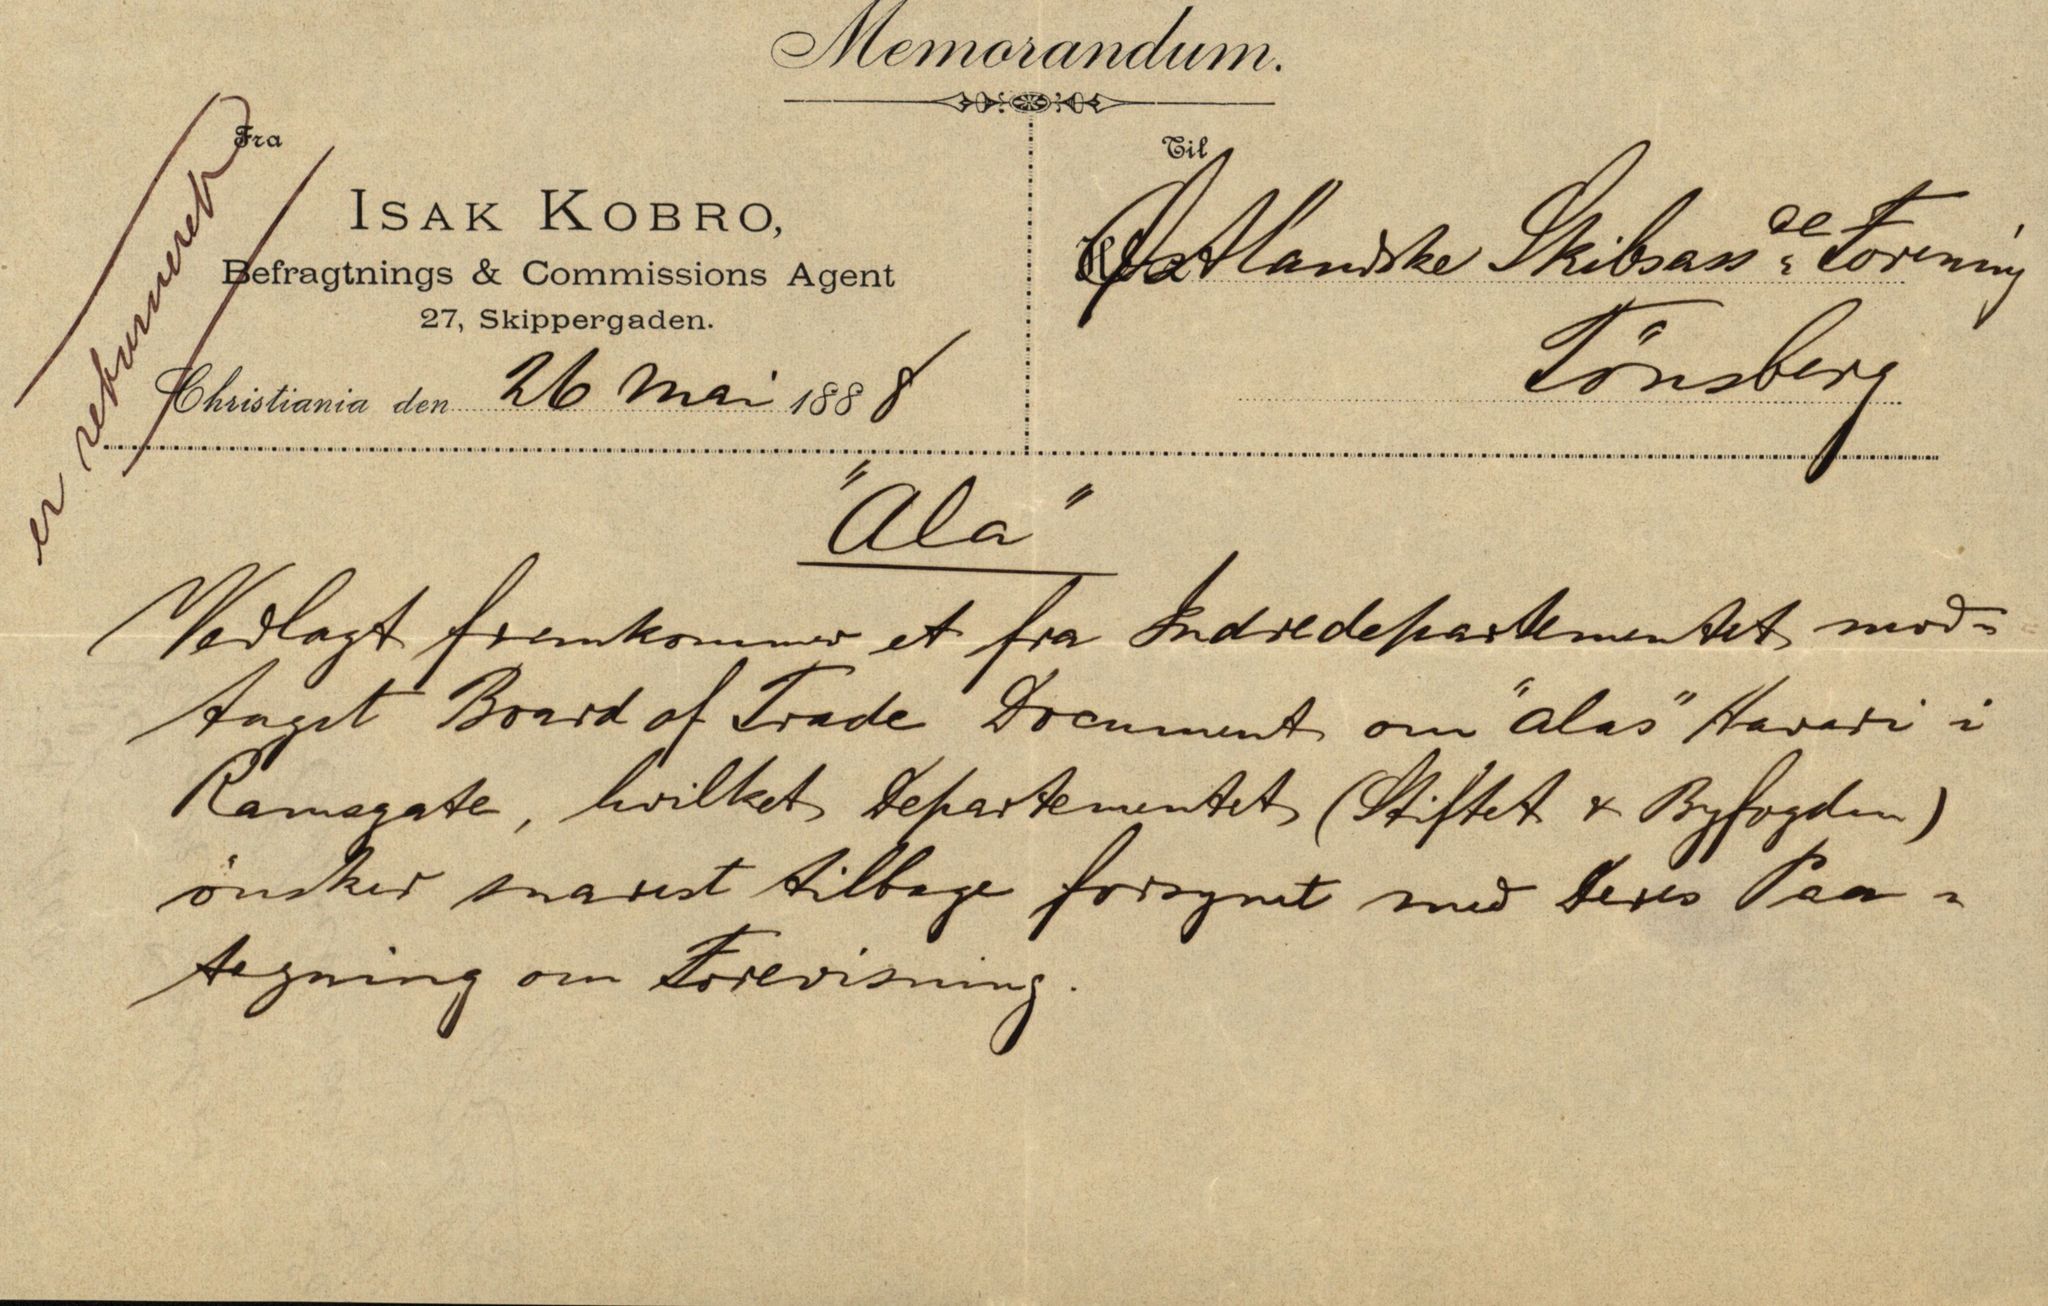 Memorandum.
Fra
ISAK KOBRO,
Befragtnings & Commissions Agent
27, Skippergaden.
Christiania den 26 Mai 1888
er returneret
Til
Østlandske Skibsass ce Forening
Tönsberg
"Ala"
Vedlagt fremkommer et fra Indredepartementet mod-
taget Board of Trade Document om "Alas" Havari i
Ramsgate, hvilket Departementet (Stiftet & Byfogden)
önsker snarest tilbage forsynet med Deres Paa-
tegning om Forevisning.